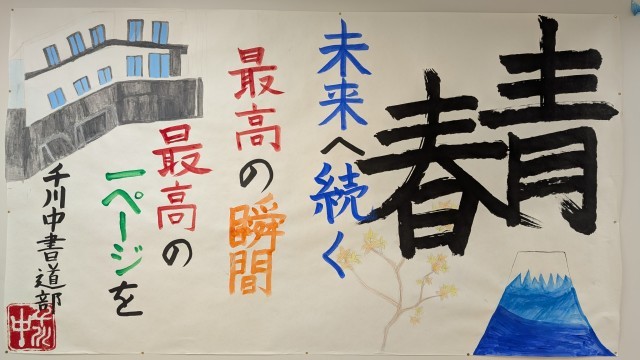 青春
未来へ続く
最高の瞬間
最高の
一ページを
千川中書道部
千川中